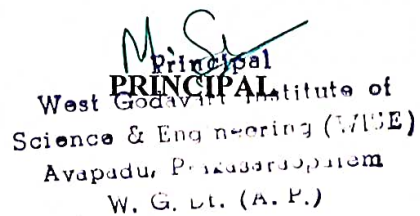 Principal
PRINCIPAL
West Godavari Institute of
Science & Engineering (WISE)
Avapadu, Prakasaraopalem
W. G. Dt. (A. P.)